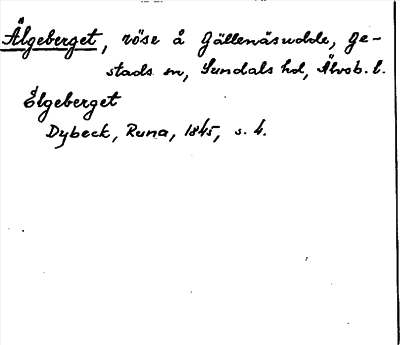 Ålgeberget, röse å Gällenäsudde, Ge-
stads sn, Sundals hd, Älvsb. l.
Elgeberget
Dybeck, Runa, 1845, s. 4.